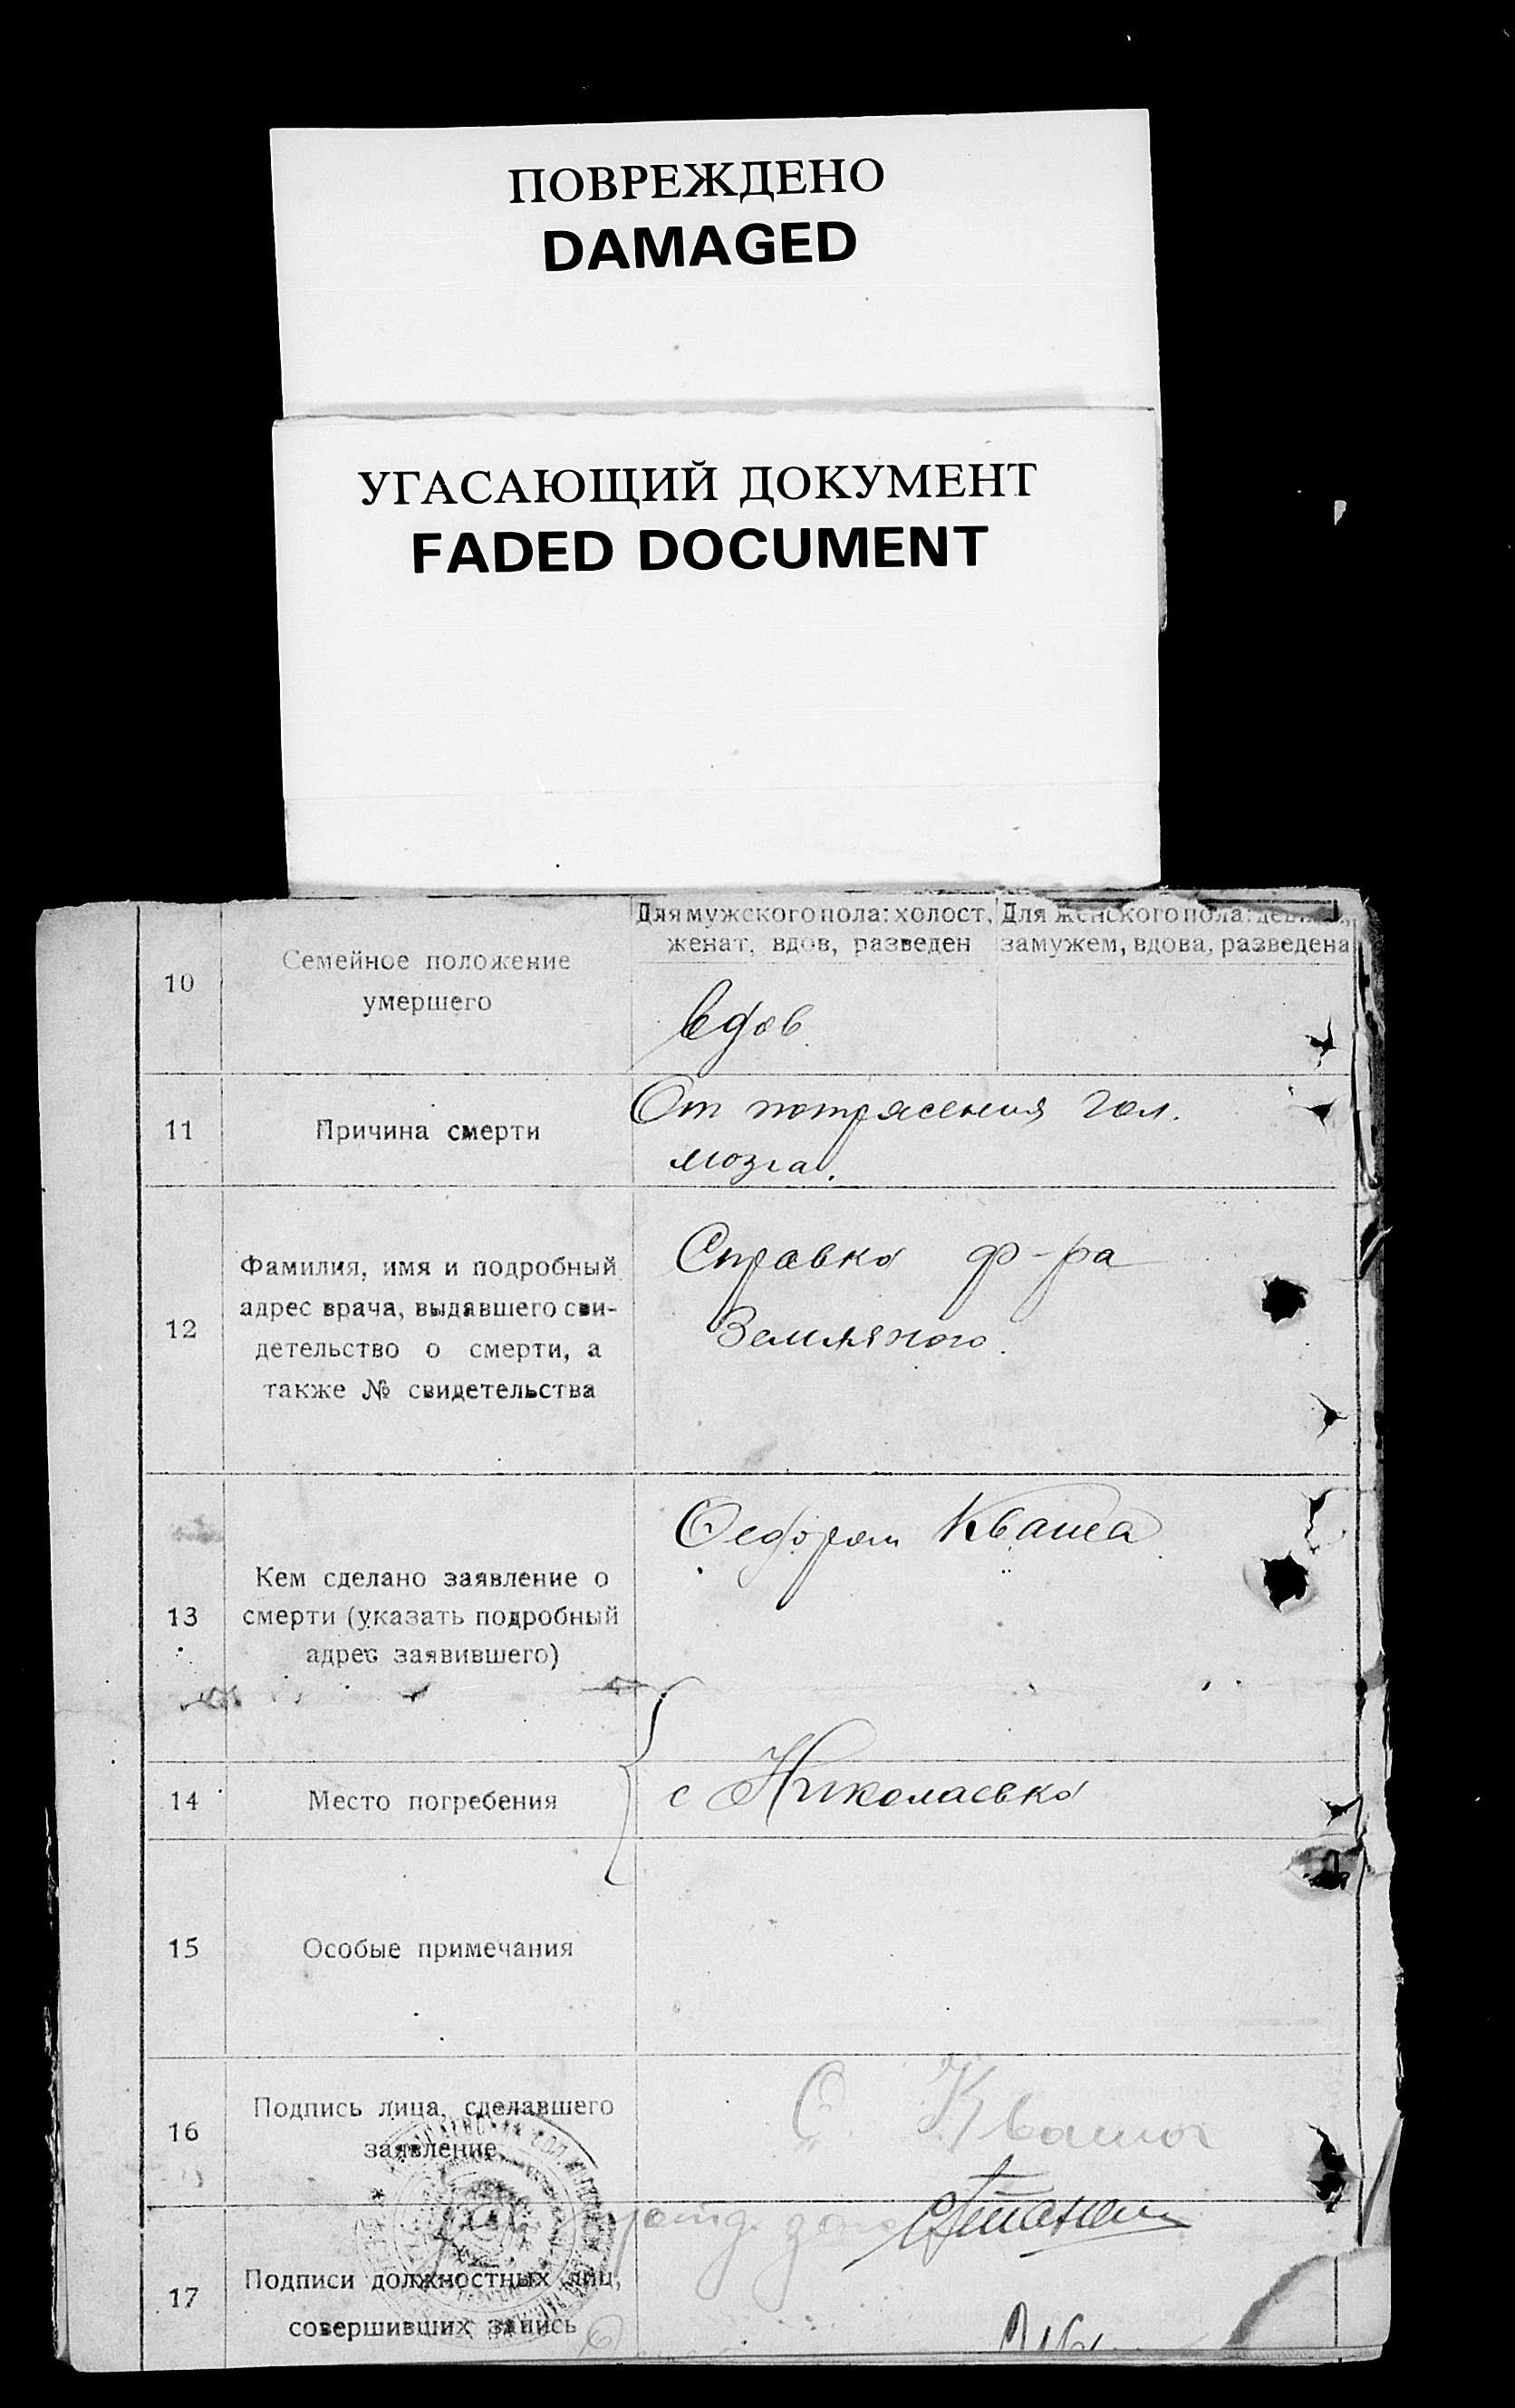 ПОВРЕЖДЕНО
DAMAGED
УГАСАЮЩИЙ ДОКУМЕНТ
FADED DOCUMENT
10
Семейное положение
умершего
Для мужского пола: холост,
женат, вдов, разведен
Для женского пола:
замужем, вдова, разведена
вдов
11
Причина смерти
От потрясения гол.
мозга.
12
Фамилия, имя и подробный
адрес врача, выдавшего сви-
детельство о смерти, а
также № свидетельства
Справка ф-ра
Земляного.
13
Кем сделано заявление о
смерти (указать подробный
адрес заявившего)
Федором Кваша
14
Место погребения
с Николаевка
15
Особые примечания
16
Подпись лица, сделавшего
заявление
Кваша
17
Подписи должностных лиц,
совершивших запись